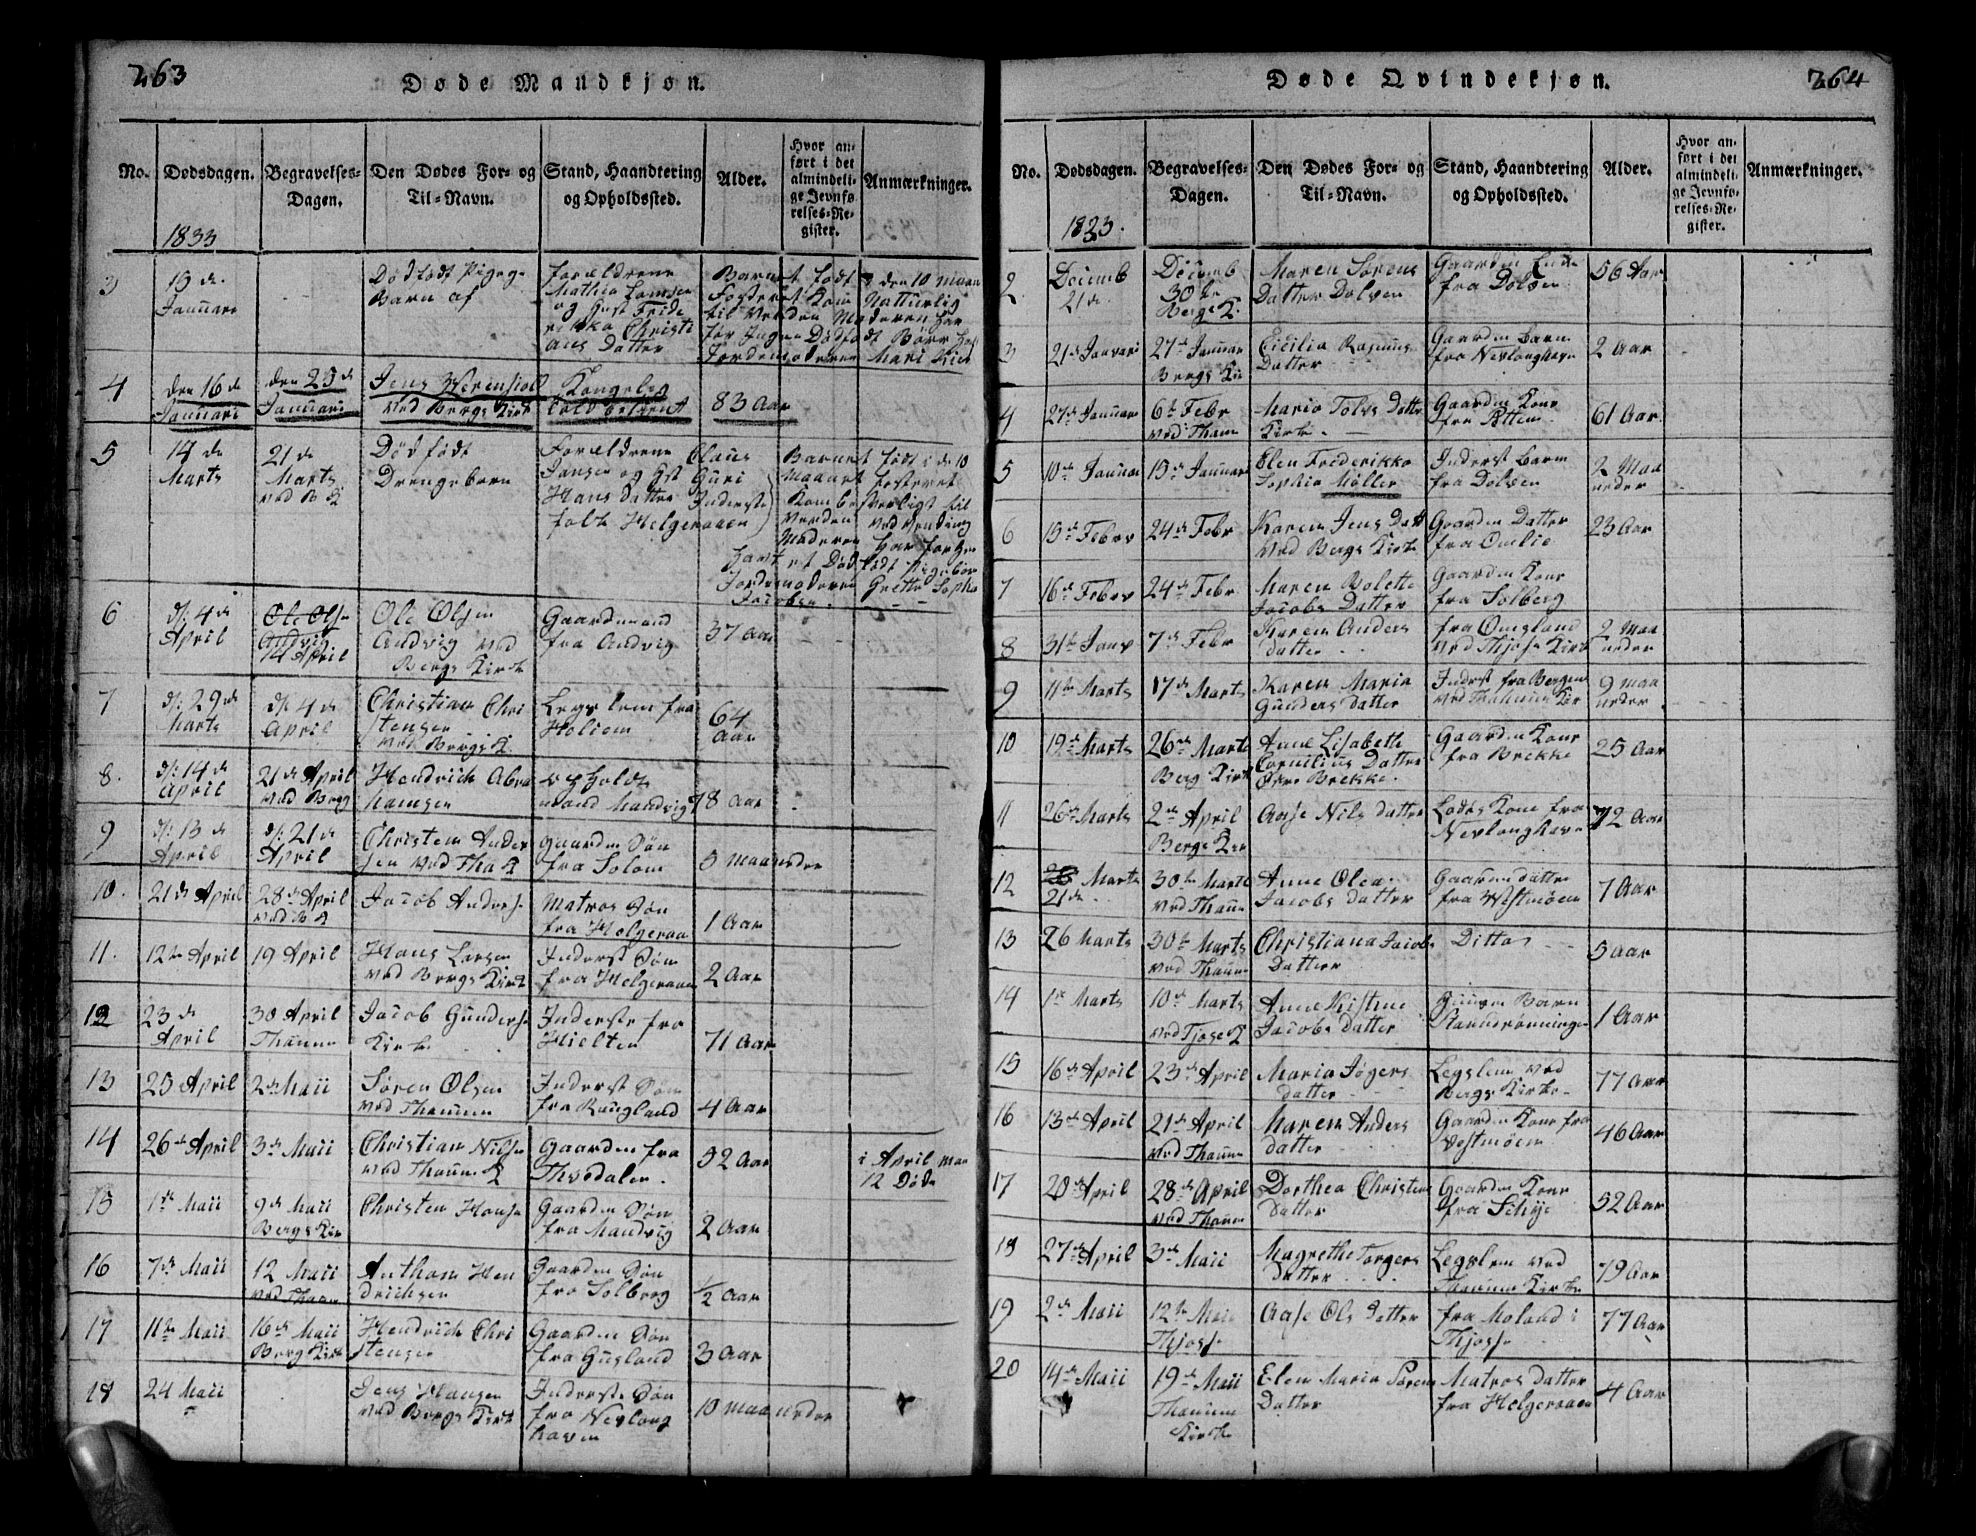 263
Døde Mandkjøn.
No.
Dødsdagen.
Begravelses-
Dagen.
Den Dødes For- og
Til-Navn.
Stand, Haandtering
og Opholdssted.
Alder.
Hvor an-
ført i det
almindeli-
ge Jevnfø-
relses-Re-
gister.
Anmærkninger.
1833
3
15 de
Januari
Død født Pige
Barn af
Forældrene
Barnet født
4
Den 16 de
Januari
den 25 de
Januari
Jens Werenskiold
ved Bergs Kirk
Kongelig
Told betjent
83 Aar
5
14 de
Marts
21 de
Marts
ved B K
Død født
Drengebarn
Forældrene Claus
Jansen og Hst Guri
Hans datter Inderste
folk Helgeraaen
6
d: 4 de
April
14 April
Ole Olsen
Andvig ved
Bergs Kirk
Gaardmand
fra Andvig
37 Aar
7
d: 29 de
Marts
d: 4 de
April
Christian Chri
stensen
ved Bergs K.
Legslem fra
Holiem
64
Aar
8.
d: 14 de
April
21 de April
ved Berg
Hendrich Abra
hamsen
opholds
mand Mandvig
78 Aar
9
d: 13 de
April
d: 21 de
April
Christen Ander
sen ved Tha K
gaardm Søn
fra Solom
5 maaneder
10.
21 de April
28 de April
ved B K
Jacob Anders
Matros Søn
fra Helgeraa
1 Aar
11.
12te April
19 April
Hans Larsen
ved Bergs Kirk
Inderst Søn
fra Helgeraaen
2 Aar
12
23 de
April
30 April
Thanum
Jacob Gunders
Kirke
Inderste fra
Hielten
71 Aar
13
25 April
2 de Maii
Søren Olsen
ved Thanum
Inderst Søn
fra Rougland
4 Aar
14
26 de April
3 de Maii
Christian Nilse
ved Thanum K
Gaardm fra
Thvedalen.
52 Aar
i April Maa
12 Døde
15
1te Maii
9 de Maii
Bergs Kir
Christen Hanse
Gaardm Søn
fra Mandvig
2 Aar
16
7 de Maii
12 Maii
ved Thanm
Anthom Hen
drichsen
Gaardm Søn
fra Solberg
1/2 Aar
17
11te Maii
16 de Maii
Berg Kirk
Hendrich Chri
stensen
Gaardm Søn
fra Gusland
3 Aar
18
24 Maii
Jens Hansen
ved Bergs Kirk
Inderste Søn
fra Nevlong
haven
10 maaneder
264
Døde Qvindekjøn.
No.
Dødsdagen.
Begravelses-
Dagen.
Den Dødes For- og
Til-Navn.
Stand, Haandtering
og Opholdssted.
Alder.
Hvor an-
ført i det
almindeli-
ge Jevnfø-
relses-Re-
gister.
Anmærkninger.
1823.
2
Decemb
21 de
Decemb
30te
Bergs K.
Maren Sørens
Datter Dolven
fra Dolven
56 Aar
3
21 de Januari
27 de Januar
Bergs Kir
Cicilia Rasmus
Datter
Gaardm barn
fra Nevlonghavn
2 Aar
4
27 de Januar
6te Febr
ved Thanm
Maria Tolvs Datte
Kirke.
Gaardm Kone
fra
61 Aar
5
10 de Januar
15 de Januari
Elen Frederikke
Sophie Møller
Inderst barn
fra Dolven
2 Maa
neder
6
15 de Febrv
24 de Febr
Karen Jens Datt
ved Bergs Kirk
Gaardm Datter
fra Omlie
23 Aar
7
16 de Febrv
24 de Febr
Maren Bolette
Jacobs Datter
Gaardm Kone
fra Solberg
8
31te Janv
7 de Febr
Karen Anders
datter
fra Omsland
ved Thjose Kirk
2 Maa
neder
9
11te Marts
17 de Marts
Karen Maria
Gunders datter
Inderst fra Bergene
ved Thanum Kir
9 maa
neder
10
19 de Marts
26 de Marts
Berg Kirk
Anne Lisabeth
Cornelius Datter
Øvre Brekke.
Gaardm Kone
fra Brekke
25 Aar
11
26 de Marts
2 de April
Bergs Kir
Aase Nils datter
Lods Kone fra
Nevlonghavn
72 Aar
12
Marts
21 de
30te Marts
ved Thanm
Anne Olea
Jacobs datter
Gaardm datter
fra Vestmøen
7 Aar
13
26 Marts
30te Marts
ved Thanm
Christiana Jacobs
Datter
Ditto
5 Aar
14
1te Marts
10 de Marts
ved Tjose K
Anne Kistine
Jacobs datter
Barn
1 Aar
15
16 de April
23 de April
Maria Jøgers
datter
Legslem ved
Bergs Kirke
77 Aar
16
13 de April
21 de April
ved Thanm
Maren Anders
datter
Gaardm Kone fra
Vestmøen
46 Aar
17
20 de April
28 de April
ved Thanm
Dorthea Christens
Datter
Gaardm Kone
fra Schye
52 Aar
18
27 de April
3 de Maii
Magrethe Torgers
datter
Legslem ved
Thanum Kirke
79 Aar
19
2 de Maii
12te Maii
Thjosse
Aase Ols Datter
fra Moland i
Thjosse
77 Aar
20
14 de Maii
19 de Maii
Thanum
Kirke
Elen Maria Sørens
Datter
Matros datter
fra Helgeraaen
4 Aar